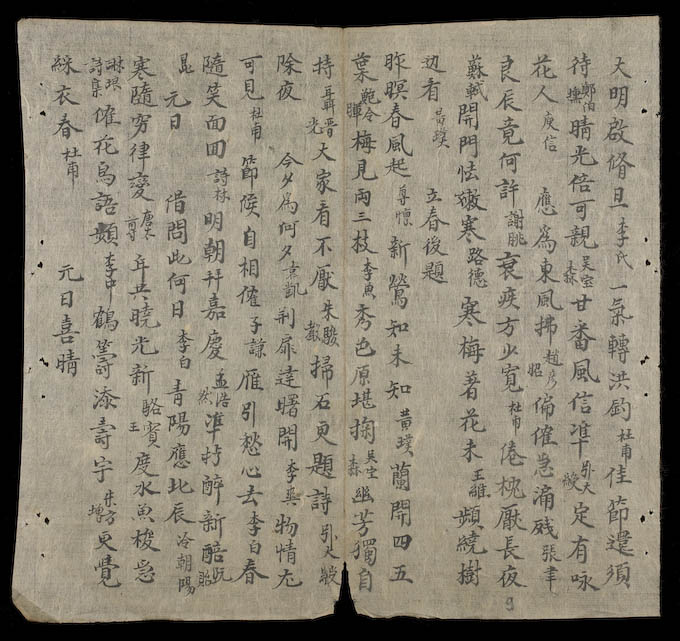 大明啟脩旦 李氏 一氣轉洪鈞 杜甫 佳節還須
待 鄭伯壎 晴光倍可親 吳宝森 廿番風信準 定有咏
花人 庾信 應為東風拂 趙彥昭 偏催急漏殘 張聿
良辰竟何許 謝朓 衰疾方少寬 杜甫 倦枕厭長夜
蘇軾 開門怯嫩寒 路德 寒梅著花未 王維 頻繞樹
边看 黃璞 立春後題
昨暝春風起 新鶯知未知 黃璞 蘭開四五
葉 鮑令暉 梅見兩三枝 李魚 秀色原堪掬 吳宝森 幽芳獨自
持 聶晉光 大家看不厭 朱駿 掃石更題詩
除夜 今夕為何夕 袁凱 荊扉達曙開 李英 物情尤
可見 杜甫 節候自相催 子謙 雁引愁心去 李白 春
隨笑面回 詩林 明朝拜嘉慶 孟浩然 準拵醉新醅 阮貽
昆 元日 借問此何日 李白 青陽應北辰 冷朝陽
寒隨窮律變 唐太尊 年共曉光新 駱賓王 度水魚梭急
琳琅詩集 催花鳥語頻 李中 鶴籌添壽宇 朱方增 更覺
綵衣春 杜甫 元日喜晴
9